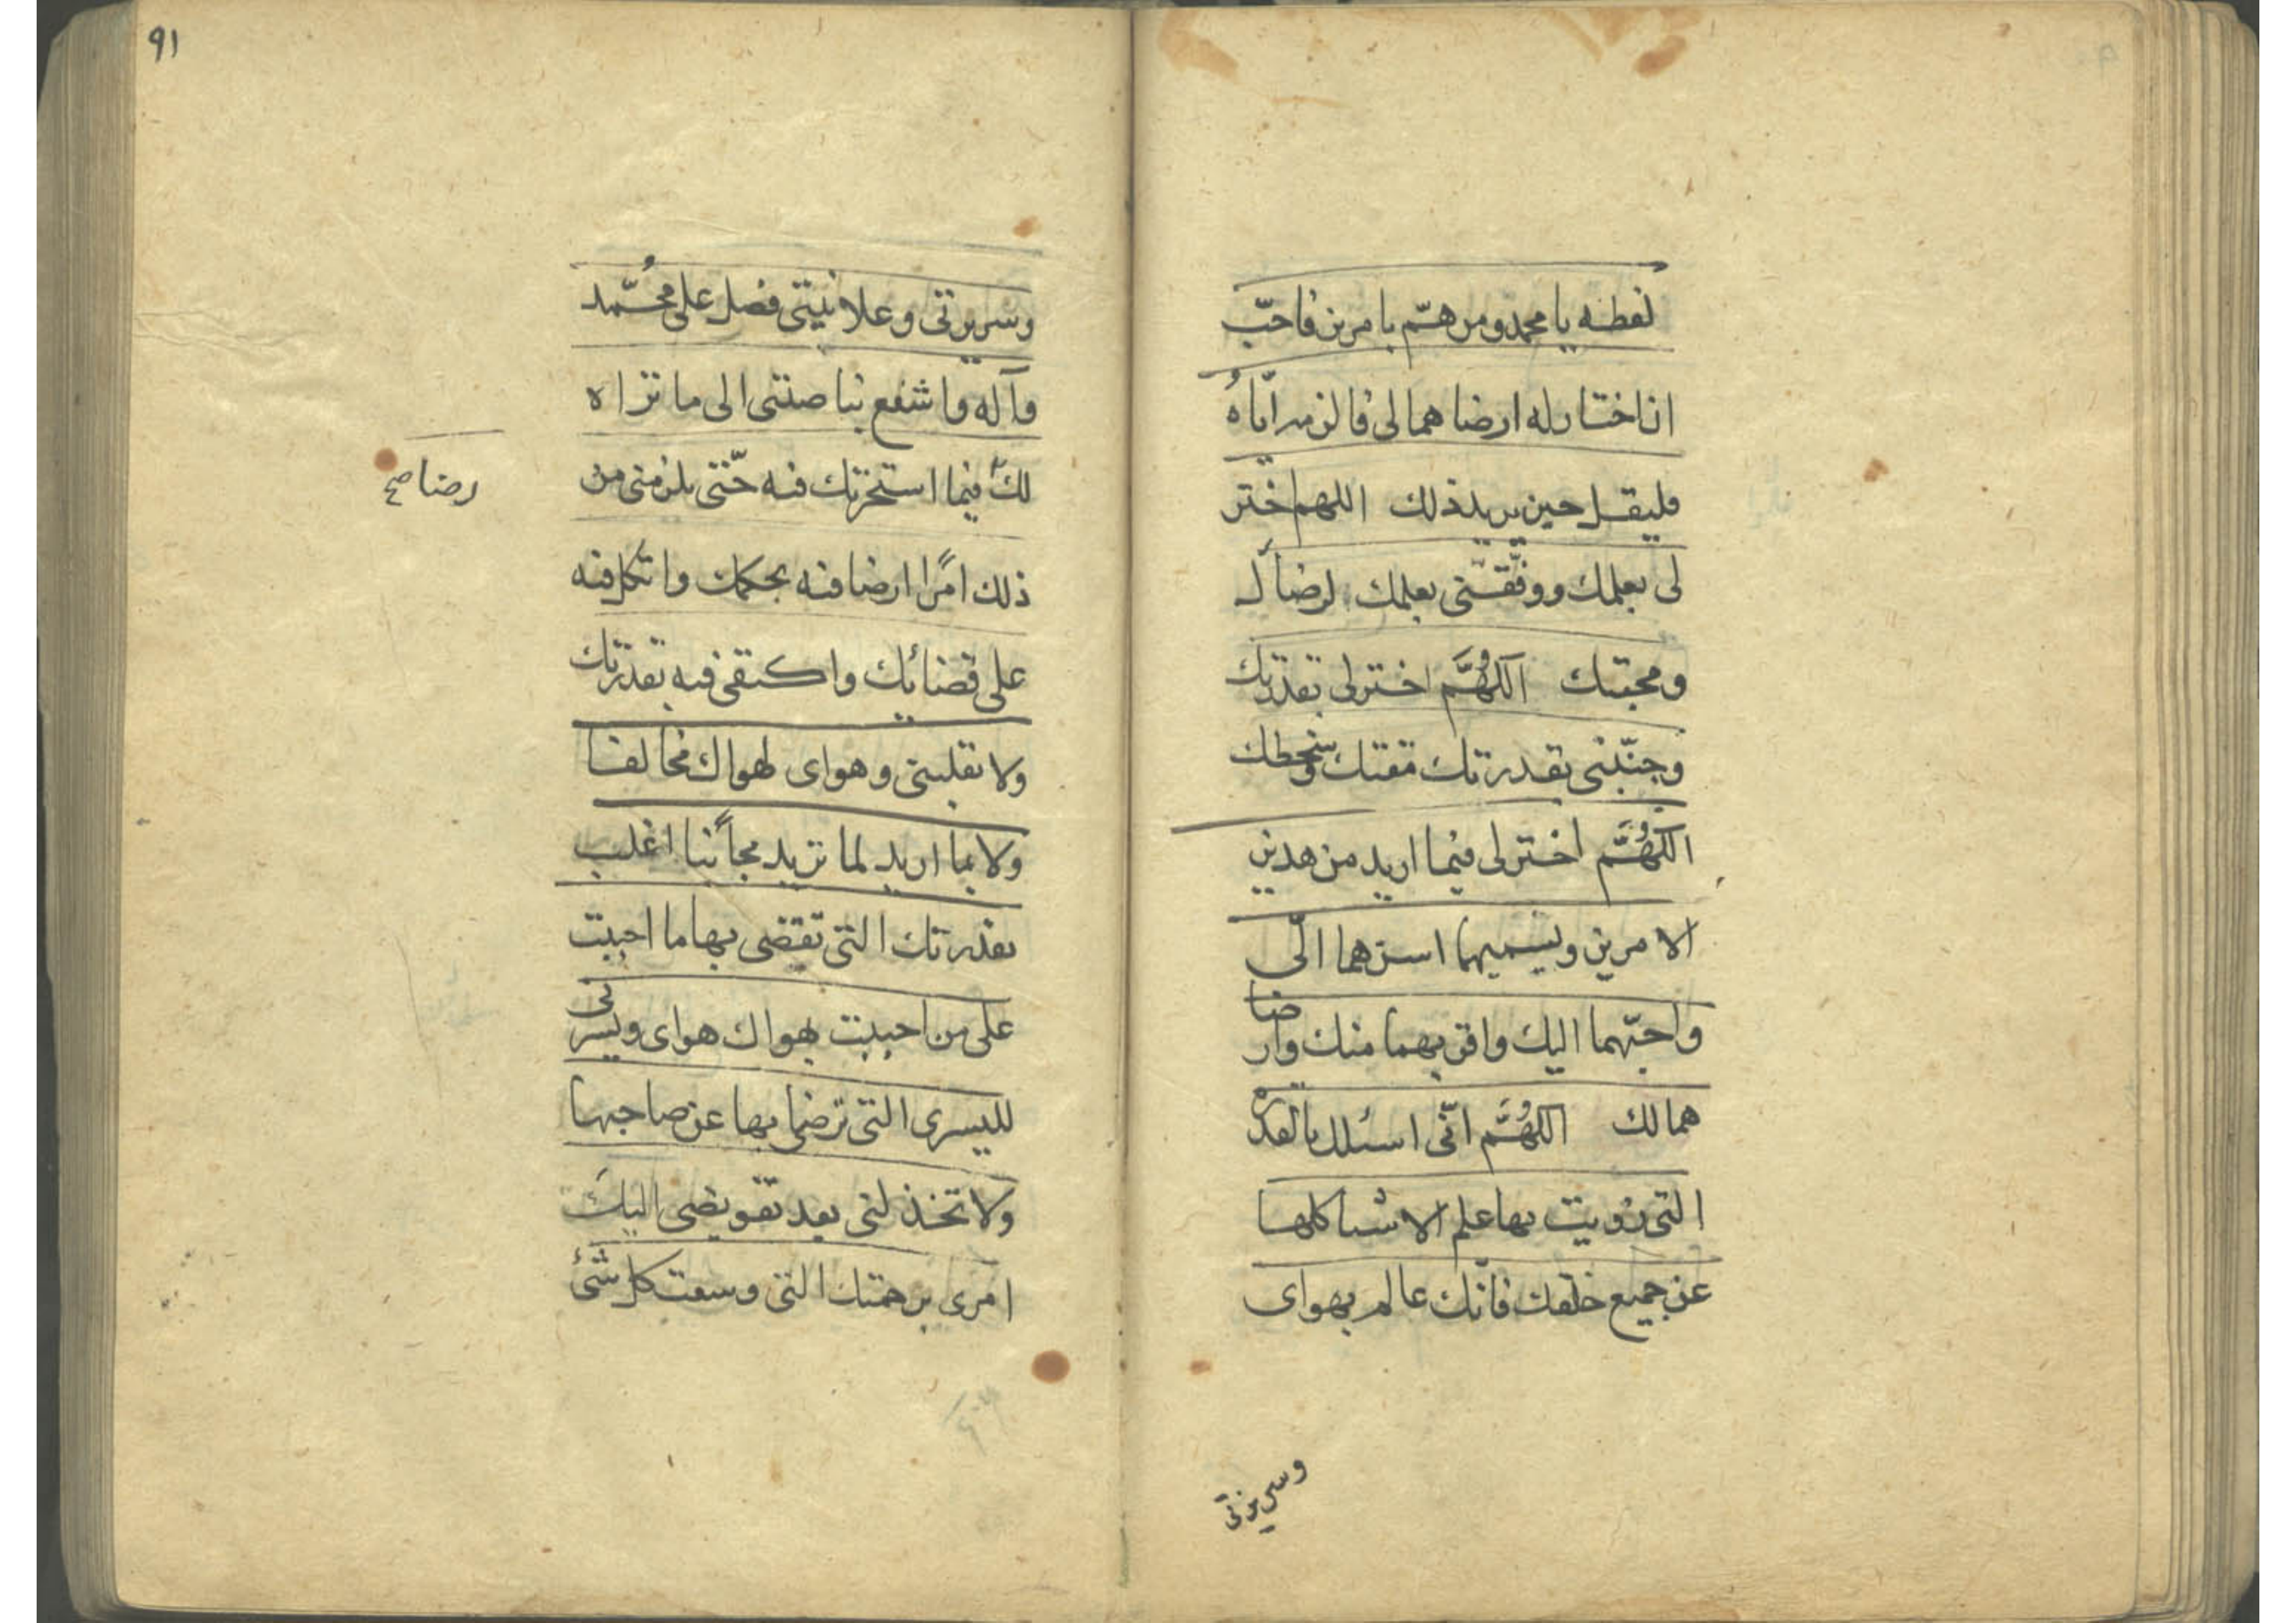 لفظه يا محمد ومن همّ بامرين فاحبّ
ان اختار له ارضاهما لى فالزمه اياه
فليقل حين يريد ذلك اللهم اختر
لى بعلمك ووفّقنى بعلمك لرضاك
ومحبتك اللهُمَّ اختر لى بقدرتك
وجنّبنى بقدرتك مقتك وسخطك
اللهُمَّ اختر لى فيما اريد من هذين
الامرين ويسميهما اسرهما الىّ
واحبّهما اليك واقربهما منك وارضا
هما لك اللهُمَّ انّى اسئلك بالقدرة
التى زويت بها علم الاشيا كلها
عن جميع خلقك فانّك عالم بهواى
وسريرتى
٩١
وسريرتى وعلانيتى فصل على محُمّد
وآله واشفع بناصيتى الى ما تراه
لك فيما استخرتك فيه حّتى يلزمنى من
رضا صح
ذلك امرًا ارضا فيه بحكمك واتكل فيه
على قضائك واكتفى فيه بقدرتك
ولا تقلبنى وهواى لهواك مخالفا
ولا بما اريد لما تريد مجانبًا اغلب
بقدرتك التى تقضى بها ما احببت
على من احببت بهواك هواى ويسرنى
لليسرى التى ترضى بها عن صاحبها
ولا تخذلنى بعد تفويضى اليكَ
امرى برحمتك التى وسعت كل شئ